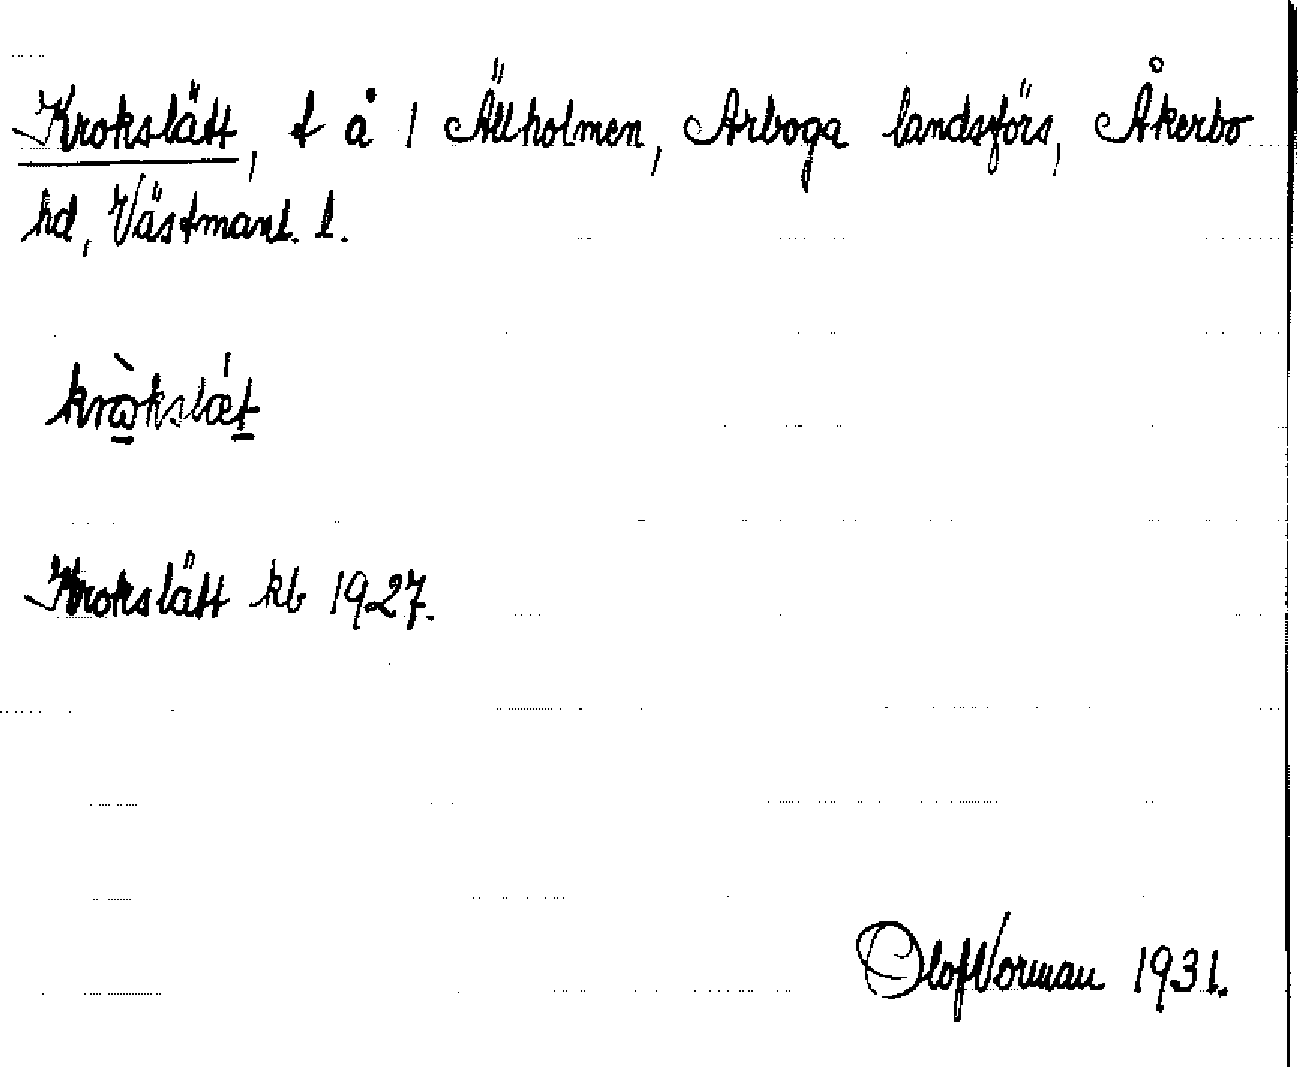 Krokslätt, t å 1 Ällholmen, Arboga landsförs, Åkerbo
hd, Västmanl. l.
kròkslæ̀t
Krokslätt kb 1927.
Olof Norman 1931.